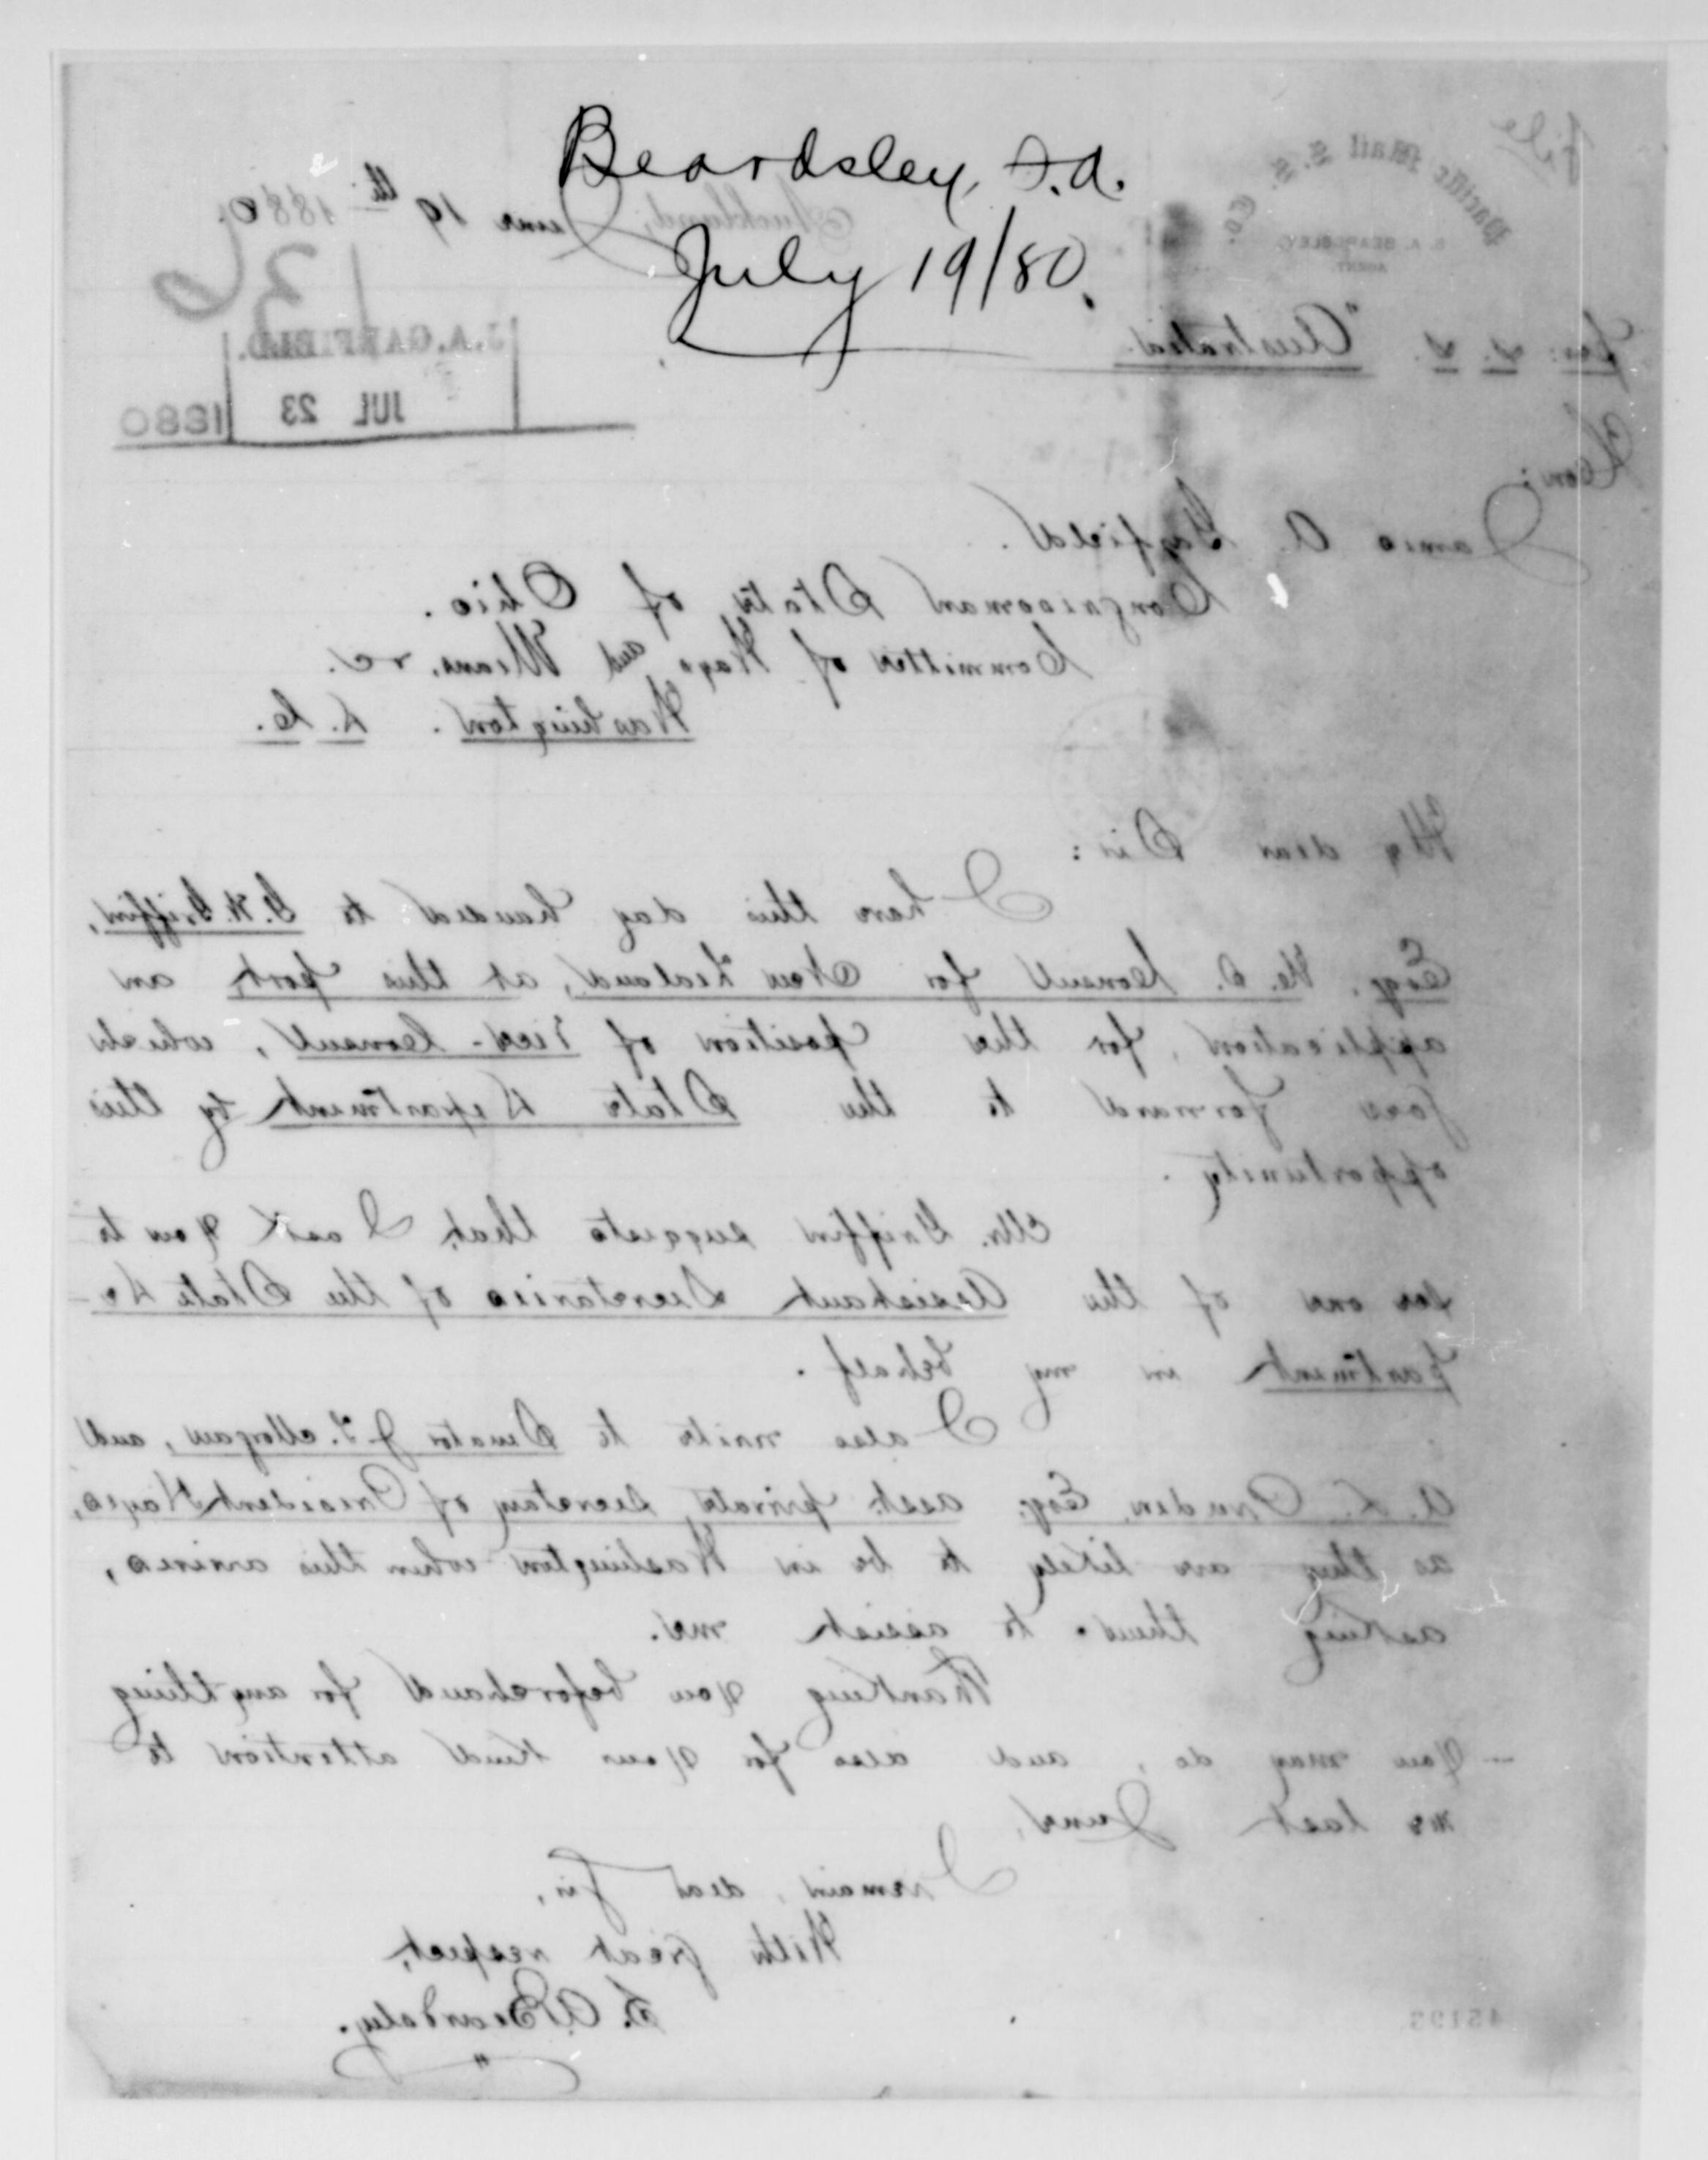 Beardsley, S.A.
July 19/80.
File
Pacific Mail S. S. Co.
S. A. BEARDSLEY,
AGENT.
Auckland, June 19th 1880.
136
Per: S. S. "Australia.
J.A. GARFIELD.
JUL 23 1880
Hon:
James A. Garfield.
Congressman State of Ohio.
Committee of Ways and Means. &c.
Washington. D. C.
My dear Sir:
I have this day handed to G. W. Griffin,
Esqr. U. S. Consul for New Zealand, at this port, an
application, for the position of Vice-Consul, which
goes forward to the State Department by this
opportunity.
Mr. Griffin suggests that I ask you to
see one of the Assistant Secretaries of the State De-
partment in my behalf.
I also write to Senator J. T. Morgan, and
O. L. Pruden, Esq. asst. private secretary of President Hayes,
as they are likely to be in Washington when this arrives,
asking them to assist me.
Thanking you beforehand for anything
you may do, and also for your kind attention to
me last June,
I remain, dear Sir,
With great respect,
S. A. Beardsley.
45193